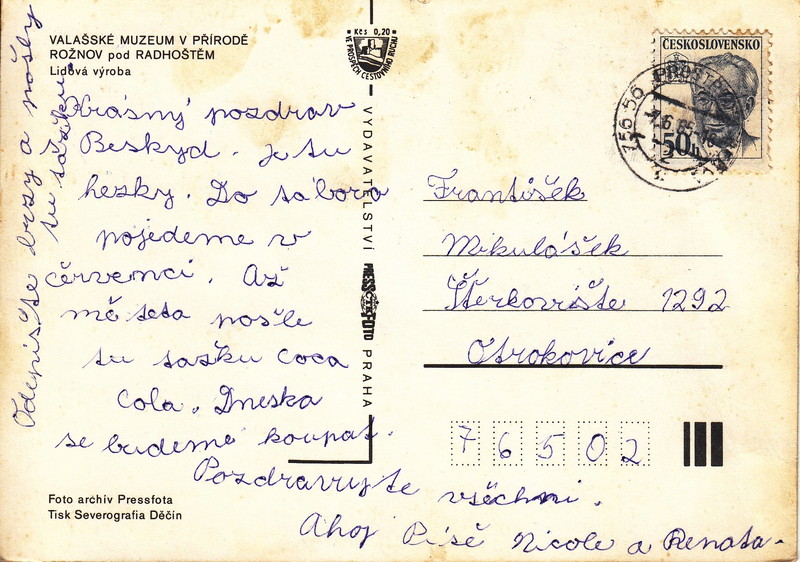 VALAŠSKÉ MUZEUM V PŘÍRODĚ
ROŽNOV pod RADHOŠTĚM
Lidová výroba
Krásný pozdrav
Beskyd. Je tu
hezky. Do tábora
pojedeme v
červenci. Až
mě teta pošle
tu tašku Coca
Cola. Dneska
se budeme koupat.
Pozdravujte všechni.
Ahoj Píšě Nicole a Renata.
Odepište brzy a pošly
tu
Foto archív Pressfota
Tisk Severografia Děčín
Kčs 0,20
VE PROSPĚCH CESTOVNÍHO RUCHU
VYDAVATELSTVÍ PRESSFOTO PRAHA
ČESKOSLOVENSKO
50h
František
Mikulášek
Štěrkoviště 1292
Otrokovice
76502